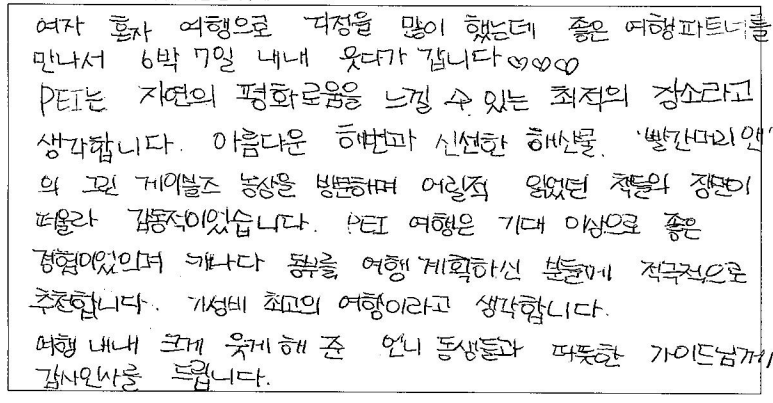 여자 혼자 여행으로 걱정을 많이 했는데 좋은 여행파트너를
만나서 6박 7일 내내 웃다가 갑니다 ♡♡♡
PEI는 자연의 평화로움을 느낄 수 있는 최적의 장소라고
생각합니다. 아름다운 해변과 신선한 해산물. '빨간머리앤'
의 그린 게이블즈 농장을 방문하며 어릴적 읽었던 책들의 장면이
떠올라 감동적이었습니다. PEI 여행은 기대 이상으로 좋은
경험이었으며 캐나다 동부를 여행 계획하신 분들에게 적극적으로
추천합니다. 가성비 최고의 여행이라고 생각합니다.
여행 내내 크게 웃게 해 준 언니 동생들과 따뜻한 가이드님께
감사인사를 드립니다.